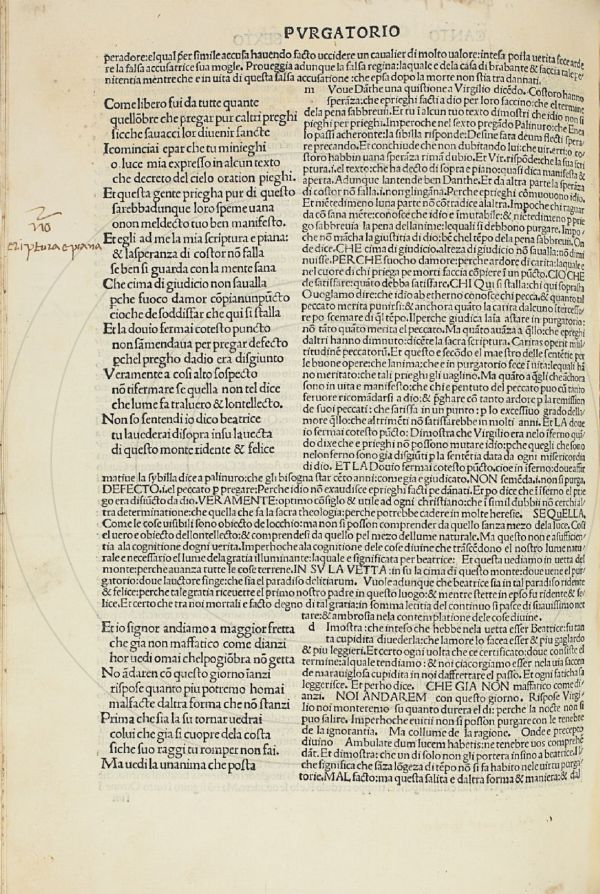 PVRGATORIO
peradore:elqual per simile accusa hauendo facto uccidere un caualier di molto ualore:intesa poi la uerita fece arde
re la falsa accusatrice sua mogle. Proueggia adunque la falsa regina:laquale e dela casa di brabante & faccia tale pe
nitentia mentre che e in uita di questa falsa accusatione:che epsa dopo la morte non stia tra dannati.
Come libero fui da tutte quante
quellõbre che pregar pur caltri preghi
sicche sauacci lor diuenir sancte
Icominciai e par che tu mi nieghi
o luce mia expresso in alcun texto
che decreto del cielo oration pieghi.
Et questa gente priegha pur di questo
sarebbadunque loro speme uana
o non meldecto tuo ben manifesto.
Et egli ad me la mia scriptura e piana:
& la speranza di costor nõ falla
se ben si guarda con la mente sana
Che cima di giudicio non saualla
pche fuoco damor cõpia nunpũcto
cio che de soddisfar che qui si stalla
Et la douio fermai cotesto puncto
non samendaua per pregar defecto
pchel pregho da dio era disgiunto
Veramente a cosi alto sospecto
nõ tifermare se quella non tel dice
che lume fia traluero & lontellecto.
Non so sentendi io dico beatrice
tu la uederai disopra in su la uecta
di questo monte ridente & felice
m Voue Dãthe una quistione a Virgilio dicẽdo. Costoro hanno
sperãza:che e prieghi facti a dio per loro faccino:che el termine
della pena sabbreui. Et tu i alcun tuo texto dimostri che idio non si
pieghi per prieghi. Imperoche nel sexto pregãdo Palinuro:che Enea
lo passi acheronte:la sibilla rispõde: Desine fata deum flecti spera
re precando. Et conchiude che non dubitando lui:che
storo habbin uana sperãza rimã dubio. Et Vir.rispõde:che la sua scri
ptura.i.el texto:che ha decto di sopra e piano:quasi dica manifesta &
aperta. Adunque lantende ben Danthe. Et da altra parte la sperãza
di costor nõ falla.i.non glingãna. Perche e prieghi cõmuouono idio,
Et nientedimeno luna parte nõ cõtradice alaltra. Impoche chi raguar
da cõ sana mẽte:conosce che idio e imutabile:& nientedimeno p prie
go sabbreuia la pena dellanime:lequali si debbono purgare. Impo
che nõ mãcha la giustitia di dio:bẽ chel tẽpo dela pena sabbreui. On
de dice.CHE cima di giudicio.alteza di giudicio nõ saualla:nõ dimi
nuisse.PER CHE fuocho damore:perche ardore di carita:laquale e
nel cuore di chi priega pe morti faccia cõpiere i un pũcto. CIO CHE
de satisfare:quato debba satisfare. CHI Qui si stalla:chi qui sopralla
O uogliamo dire:che idio abetherno conosce chi pecca:& quanto tal
peccato merita punirsi:& anchora quãto la carita dalcuno itercesso
re po scemare di q̃l tẽpo. Il perche giudica laia astare in purgatorio:
nõ tãto quãto merita el peccato. Ma quãto auãza a q̃llo:che e prieghi
daltri hanno diminuto:dicẽte la sacra scriptura. Caritas operit mul
titudinẽ peccatorũ. Et questo e secõdo el maestro delle sentẽtie per
le buone opere che lanima:che e in purgatorio fece ĩ uita:lequali hã
no meritato:che tali prieghi gli uaglino. Ma quãto a q̃gli che ãchora
sono in uita e manifesto:che chi e pentuto del peccato puo cũ tanto
feruore ricomãdarsi a dio:& p̃ghare cõ tanto ardore p la remissiõn
de suoi peccati: che satisfa in un punto: p lo excessiuo grado della
more q̃llo:che altrimẽti nõ satisfarebbe in molti anni. Et LA doue
io fermai cotesto pũcto: Dimostra che Virgilio era nelo iferno quã
do dixe che e prieghi nõ possono mutare idio:pche quegli che sono
nelonferno sono gia disgiũti p la sentẽtia data da ogni misericordia
di dio. ET LA Douio fermai cotesto pũcto.cioe in iferno:doue affir
matiue la sybilla dice a palinuro:che gli bisogna star cẽto anni:come gia e giudicato. NON semẽda.i.non si purga.
DEFECTO.i.el peccato p pregare: Perche idio nõ exaudisce e prieghi facti pe dãnati. Et po dice che ĩ iferno el prie
go era disiũcto da dio.VERAMENTE:optimo cõsiglo & utile ad ogni christiano:che i simil dubii nõ cerchi al
tra determinatione:che quella che fa la sacra theologia:perche potrebbe cadere in molte heresie. SE QVELLA.
Come le cose uisibili sono obiecto de locchio:ma non si posson comprender da quello sanza mezo dela luce. Cosi
el uero e obiecto dellontellecto:& comprendesi da quello pel mezo del lume naturale. Ma questo non e a sufficien
tia ala cognitione dogni uerita. Imperhoche ala cognitione dele cose diuine che trãscẽdono el nostro lume natu
rale e necessario el lume dela gratia illuminante:laquale e significata per beatrice. Et questa uediamo in uetta del
monte:perche auanza tutte le cose terrene.IN SV LA VETTA:in su la cima di questo monte:doue uene el pur
gatorio:doue lauctore finge:che sia el paradiso delitiarum. Vuole adunque che beatrice sia in tal paradiso ridente
& felice:perche tale gratia riceuette el primo nostro padre in questo luogo:& mentre stette in epso fu ridente & fe
lice. Et certo che tra noi mortali e facto degno di tal gratia:in somma letitia del continuo si pasce di suauissimo net
tare:& ambrosia nela contemplatione dele cose diuine.
Et io signor andiamo a maggior fretta
che gia non maffatico come dianzi
hor uedi omai chel pogiõbra nõ getta
No ãdarẽ cõ questo giorno ianzi
rispose quanto piu potremo homai
mal facte daltra forma che nõ stanzi
Prima che sia la su tornar uedrai
colui che gia si cuopre dela costa
si che suo raggi tu romper non fai.
Ma uedi la unanima che posta
d Imostra:che inteso che hebbe nela uetta esser Beatrice:fu tan
ta cupidita di uederla:che lamore lo facea esser & piu gagliardo
& piu leggieri. Et certo ogni uolta che ce certificato:doue consiste el
termine:al quale tendiamo: & noi ci acorgiamo esser nela uia:faccen
de marauigliosa cupidita in noi daffrettare el passo. Et ogni fatica fa
leggerisce. Et perho dice. CHE GIA NON maffatico come di
anzi. NOI ANDAREM con questo giorno. Rispose Virgi
lio noi monteremo su quanto durera el di: perche la nocte non si
puo salire. Imperhoche e uitii non si posson purgare con le tenebre
de la ignorantia. Ma col lume de la ragione. Onde e precepto
diuino Ambulate dum lucem habetis:ne tenebre uos comprehẽ
dãt. Et dimostra: che un di solo non gli portera insino a beatrice:
che significa che sãza lõgeza di tẽpo nõ si fa habito nele uirtu purga
torie.MAL facto:ma questa salita e daltra forma & maniera:& dal
no
scriptura e piana